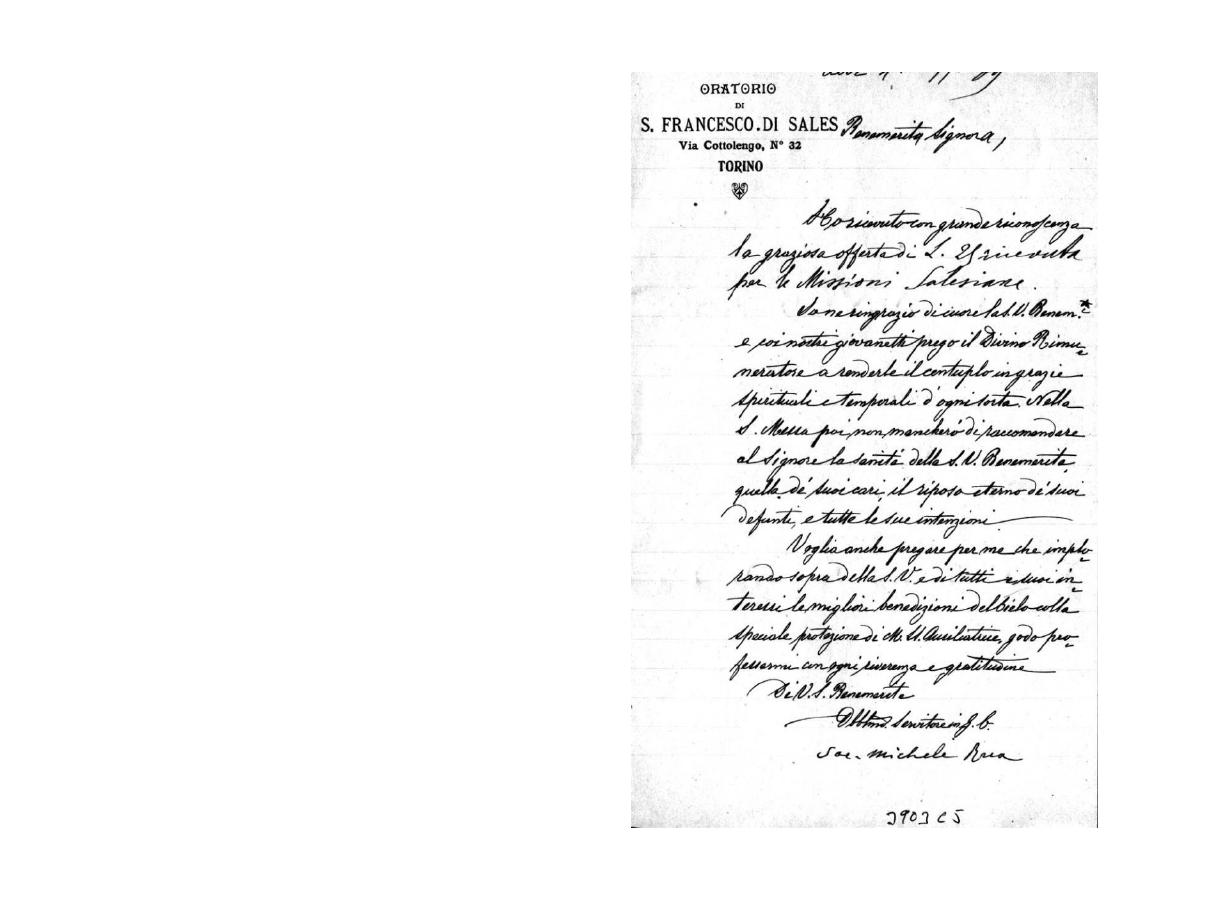 ORATORIO
DI
S. FRANCESCO. DI SALES
Via Cottolengo, N° 32
TORINO
Benemerita Signora,
Ho ricevuto con grande riconoscenza
la graziosa offerta di L. 25 ricevuta
per le Missioni Salesiane.
Io ne ringrazio di cuore la S. V. Benem.
e coi nostri giovanetti prego il Divino Rimu-
neratore a renderle il centuplo in grazie
spirituali e temporali d'ogni sorta. Nella
S. Messa poi non mancherò di raccomandare
al Signore la sanità della S. V. Benemerita,
quella de' suoi cari, il riposo eterno de' suoi
defunti, e tutte le sue intenzioni
Voglia anche pregare per me che implo-
rando sopra della S. V. e di tutti i suoi in-
teressi le migliori benedizioni del Cielo colla
speciale protezione di M. SS. Ausiliatrice, godo pro-
fessarmi con ogni riverenza e gratitudine
Di V. S. Benemerita
Obblmo. Servitore in G. C.
Sac. Michele Rua
3903 C 5